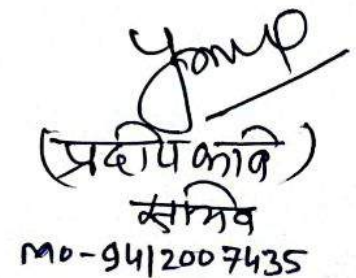 (प्रदीप कावे)
सचिव
mo-9412007435